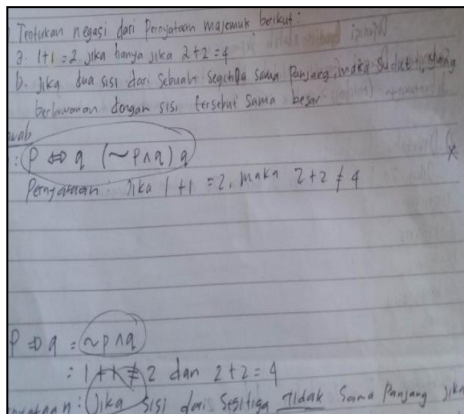 Tentukan negasi dari Pernyataan majemuk berikut:
a. 1+1 = 2 jika hanya jika 2+2 = 4
b. Jika dua sisi dari sebuah segitiga sama panjang, maka sudut yang
berlawanan dengan sisi tersebut sama besar
wab
: P ⇔ q (~P∧q) q
Pernyataan: Jika 1+1 = 2, maka 2+2 ≠ 4
P ⇒ q = ~P∧q
: 1+1 ≠ 2 dan 2+2 = 4
yataan: Jika sisi dari segitiga tidak sama panjang jika